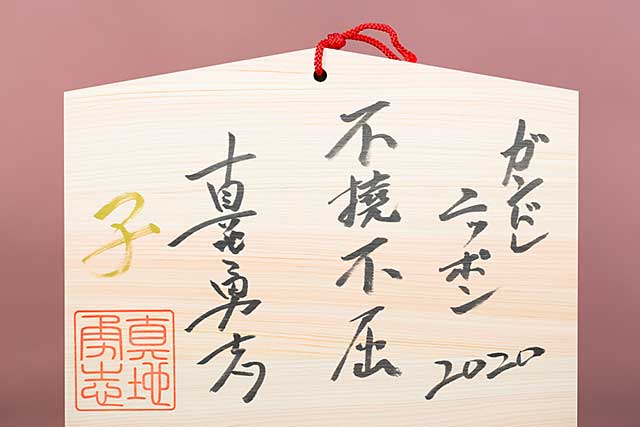 ガンバレ
ニッポン
2020
不撓不屈
真地勇志
子
真地
勇志